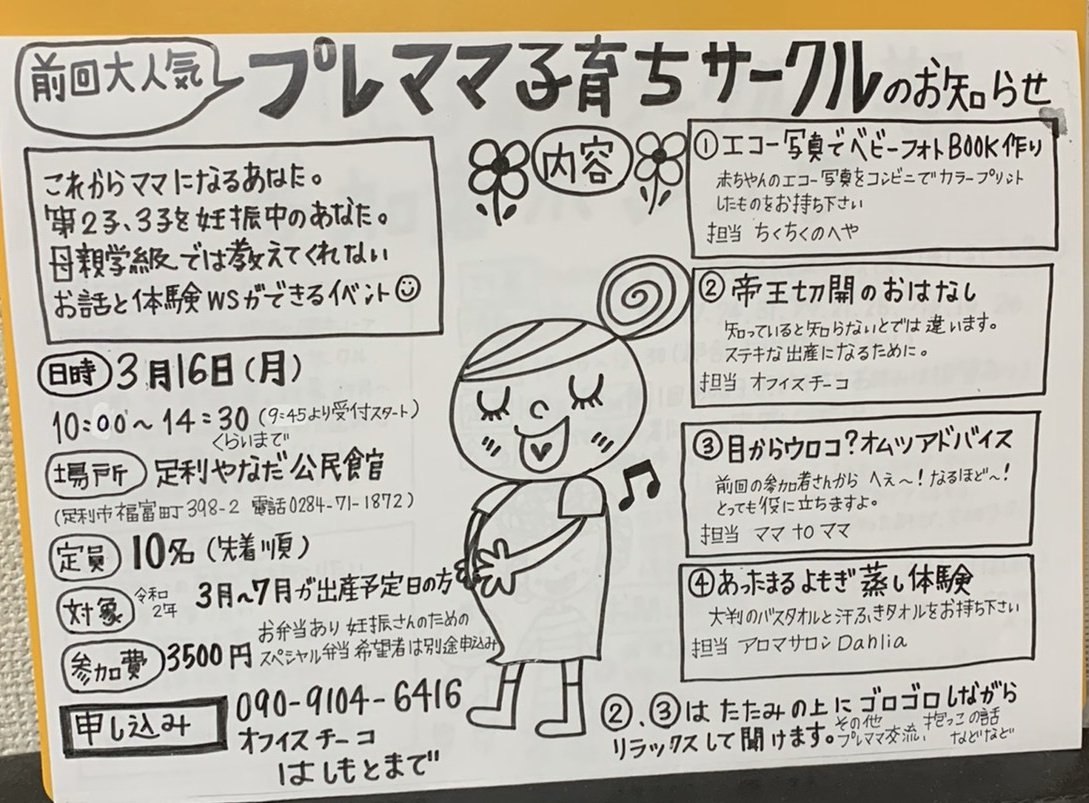 前回大人気
プレママ子育ちサークルのお知らせ
これからママになるあなた。
第2子、3子を妊振中のあなた。
母親学級では教えてくれない
お話と体験WSができるイベント
日時 3月16日(月)
10:00〜14:30(9:45より受付スタート)
くらいまで
場所 足利やなだ公民館
(足利市福富町398-2 電話0284-71-1872)
定員 10名(先着順)
対象 令和2年 3月〜7月が出産予定日の方
参加費 3500円
お弁当あり 妊振さんのための
スペシャル弁当 希望者は別途申込み
申し込み
090-9104-6416
オフィスチーコ
はしもとまで
内容
①エコー写真でベビーフォトBOOK作り
赤ちゃんのエコー写真をコンビニでカラープリント
したものをお持ち下さい
担当 ちくちくのへや
②帝王切開のおはなし
知っていると知らないとでは違います。
ステキな出産になるために。
担当 オフィスチーコ
③目からウロコ?オムツアドバイス
前回の参加者さんから へぇ〜!なるほど〜!
とっても役に立ちますよ。
担当 ママtoママ
④あったまるよもぎ蒸し体験
大判のバスタオルと汗ふきタオルをお持ち下さい
担当 アロマサロンDahlia
②、③はたたみの上にゴロゴロしながら
リラックスして聞けます。
その他 抱っこの話
プレママ交流、などなど